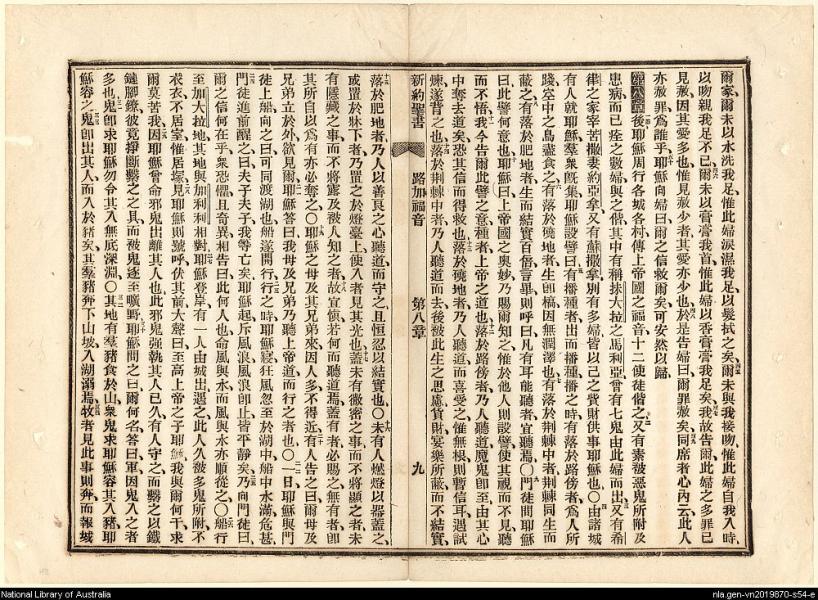 爾家、爾未以水洗我足、惟此婦淚濕我足、以髮拭之矣、爾未與我接吻、惟此婦自我入時、
以吻親我足不已、爾未以膏膏我首、惟此婦以香膏膏我足矣、我故告爾、此婦之多罪已
見赦、因其愛多也、惟見赦少者、其愛亦少也、於是告婦曰、爾罪赦矣、同席者心內云、此人
亦赦罪、爲誰乎、耶穌向婦曰、爾之信救爾矣、可安然以歸、
第八章 後耶穌周行各城各村、傳上帝國之福音、十二使徒偕之、又有素被惡鬼所附、及
患病、而已痊之數婦與之偕、其中有稱抹大拉之馬利亞、曾有七鬼由此婦而出、又有希
律之家宰苦撒妻約亞拿、又有蘇撒拿、別有多婦、皆以己之貲財供事耶穌也、〇由諸城
有人就耶穌、羣衆旣集、耶穌設譬曰、有播種者出而播種、播之時、有落於路傍者、爲人所
踐、空中之鳥盡食之、有落於磽地者、生卽槁、因無潤澤也、有落於荆棘中者、荆棘同生而
蔽之、有落於肥地者、生而結實百倍、言畢、則呼曰、凡有耳能聽者、宜聽焉、〇門徒間耶穌
曰、此譬何意也、耶穌曰、上帝國之奧妙、乃賜爾知之、惟於他人、則設譬、使其視而不見、聽
而不悟、我今告爾此譬之意、種者、上帝之道也、落於路傍者、乃人聽道、魔鬼卽至、由其心
中奪去道矣、恐其信而得救也、落於磽地者、乃人聽道而喜受之、惟無根、則暫信耳、遇試
煉、遂背之也、落於荆棘中者、乃人聽道而去、後被此生之思慮貨財宴樂所蔽、而不結實、
新約聖書 路加福音 第八章 九
落於肥地者、乃人以善良之心聽道而守之、且恒忍以結實也、〇未有人燃燈以器蓋之、
或置於牀下者、乃置之於燈臺上、使入者見其光也、蓋未有微密之事、而不將顯之者、未
有隱藏之事、而不將露及被人知之者、故宜愼若何而聽焉、蓋有者必賜之、無有者、卽
其所自以爲有、亦必奪之、〇耶穌之母及其兄弟來、因人多不得近、有人告之曰、爾母及
兄弟立於外、欲見爾、耶穌答曰、我母及兄弟、乃聽上帝道而行之者也、〇一日耶穌與門
徒上船、向之曰、可同渡湖也、船遂開行、行之時、耶穌寢、狂風忽至於湖中、船中水滿危甚、
門徒進前醒之曰、夫子夫子、我等亡矣、耶穌起斥風浪、風浪卽止、皆平靜矣、乃向門徒曰、
爾之信何在乎、衆恐懼且奇異、相告曰、此何人也、命風與水、而風與水亦順從之、〇船行
至加大拉地、其地與加利利相對、耶穌登岸、有一人由城出遇之、此人久被多鬼所附、不
衣衣、不居室、惟居塚、見耶穌則號呼、伏其前、大聲曰、至高上帝之子耶穌、我與爾何干、求
爾莫苦我、因耶穌曾命邪鬼出離其人也、此邪鬼強執其人已久、有人守之、而繫之以鐵
鏈脚鐐、彼竟掙斷繫之之具、而被鬼逐至曠野、耶穌問之曰、爾何名、答曰、軍、因鬼入之者
多也、鬼卽求耶穌、勿令其入無底深淵、〇其地有羣豬食於山、衆鬼求耶穌容其入豬、耶
穌容之、鬼卽出其人、而入於豬矣、其羣豬奔下山坡、入湖溺焉、牧者見此事、則奔而報城
National Library of Australia
nla.gen-vn2019870-s54-e